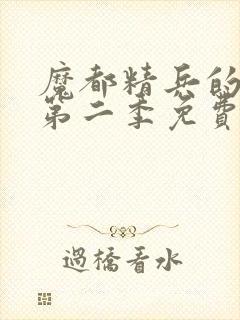 魔都精兵的
第二季免費
過橋看水